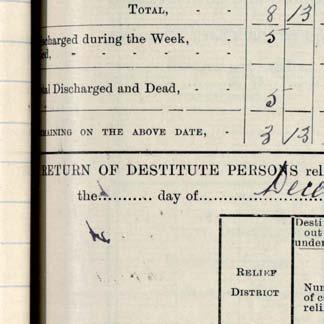 TOTAL, - - 8 13
charged during the Week, - 5
ed, - - - - -
al Discharged and Dead, - 5
MAINING ON THE ABOVE DATE, - 3 13
RETURN OF DESTITUTE PERSONS rel
the........... day of........... Dece
Desti
out
under
RELIEF
DISTRICT
Num
of c
reli